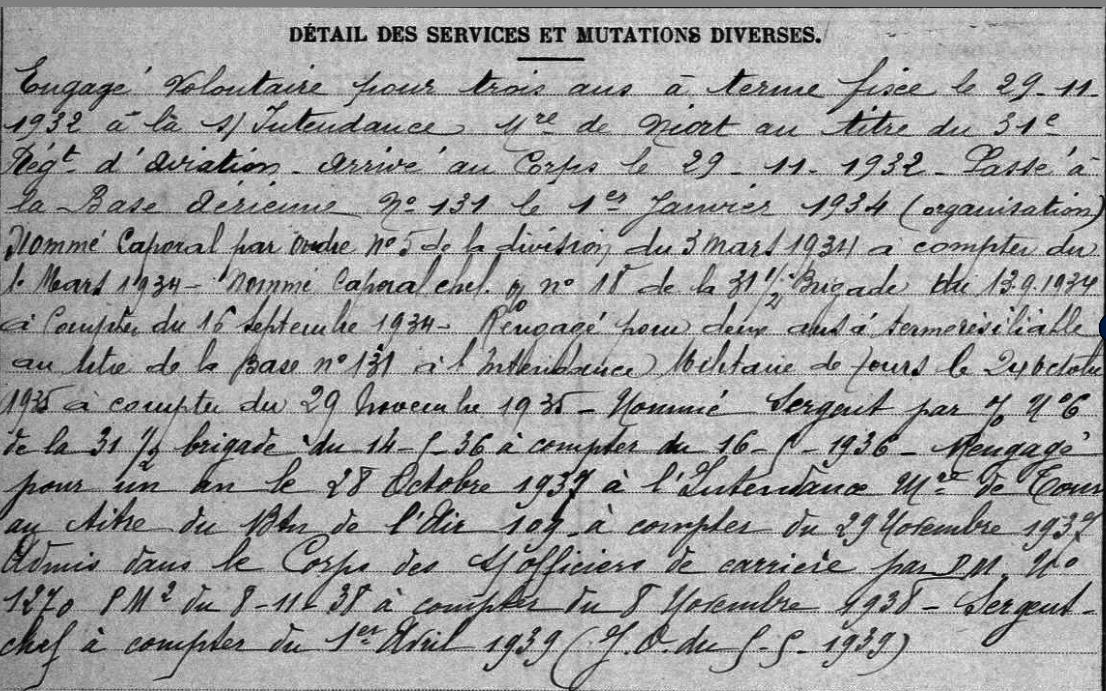 DÉTAIL DES SERVICES ET MUTATIONS DIVERSES.
Engagé Volontaire pour trois ans à terme fixe le 29-11-
1932 à la S/Intendance Mre de Niort au titre du 31e
Régt d'Aviation. Arrivé au Corps le 29-11-1932- Passé à
la Base Aérienne No 131 le 1er Janvier 1934 (organisation)
Nommé Caporal par ordre no 5 de la division du 3 Mars 1934 à compter du
1. Mars 1934- Nommé Caporal chef. no 18 de la 31 1/2 Brigade du 13.9.1934
à Compter du 16 Septembre 1934- Rengagé pour deux ans à terme résiliable
au titre de la Base no 131 à l'Intendance Militaire de Tours le 24 Octobre
1935 à compter du 29 Novembre 1935- Nommé Sergent par No 6
de la 31 1/2 brigade du 14-5-36 à compter du 16-5-1936- Rengagé
pour un an le 28 Octobre 1937 à l'Intendance Mre de Tours
au titre du Btn de l'Air 109 à compter du 29 Novembre 1937
Admis dans le Corps des S/officiers de carrière par D.M. No
1270 PM2 du 8-11-38 à compter du 8 Novembre 1938- Sergent-
chef à compter du 1er Avril 1939 (J.O. du 5-5-1939)